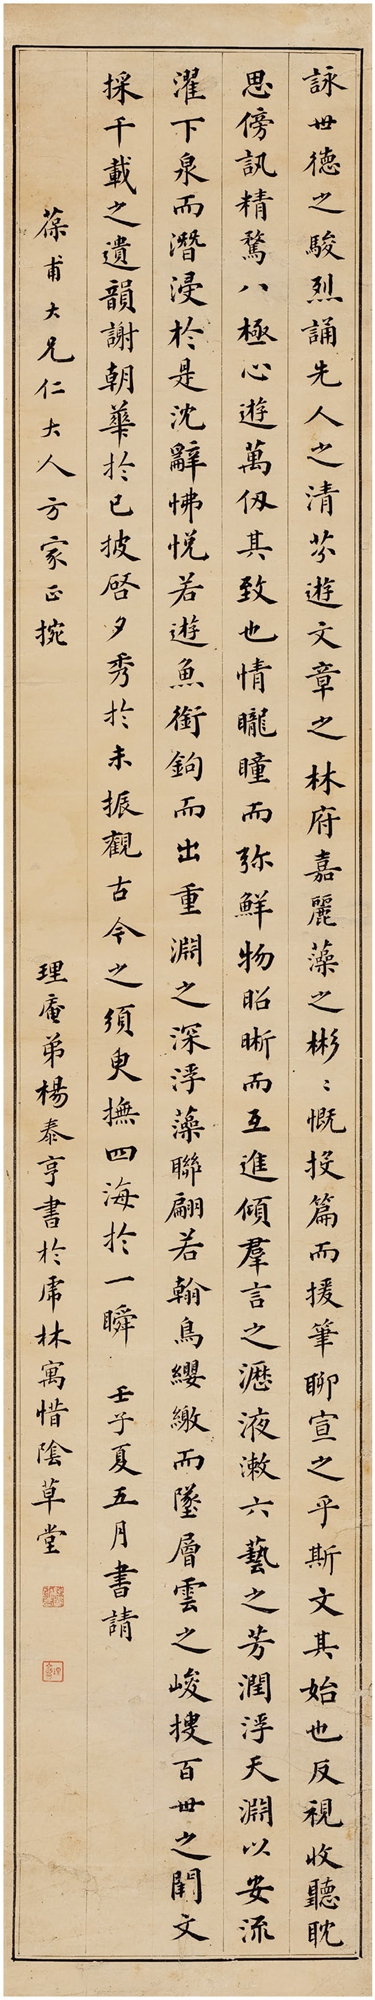 詠世德之駿烈誦先人之清芬遊文章之林府嘉麗藻之彬〻慨投篇而援筆聊宣之乎斯文其始也反視收聽耽
思傍訊精騖八極心遊萬仞其致也情曨曈而弥鮮物昭晣而互進傾羣言之瀝液漱六藝之芳潤浮天淵以安流
濯下泉而潛浸於是沈辭怫悅若遊魚銜鉤而出重淵之深浮藻聯翩若翰鳥纓繳而墜層雲之峻搜百世之闕文
採千載之遺韻謝朝華於已披啓夕秀於未振觀古今之須臾撫四海於一瞬 壬子夏五月書請
葆甫大兄仁大人方家正捥 理庵弟楊泰亨書於虎林寓惜陰草堂